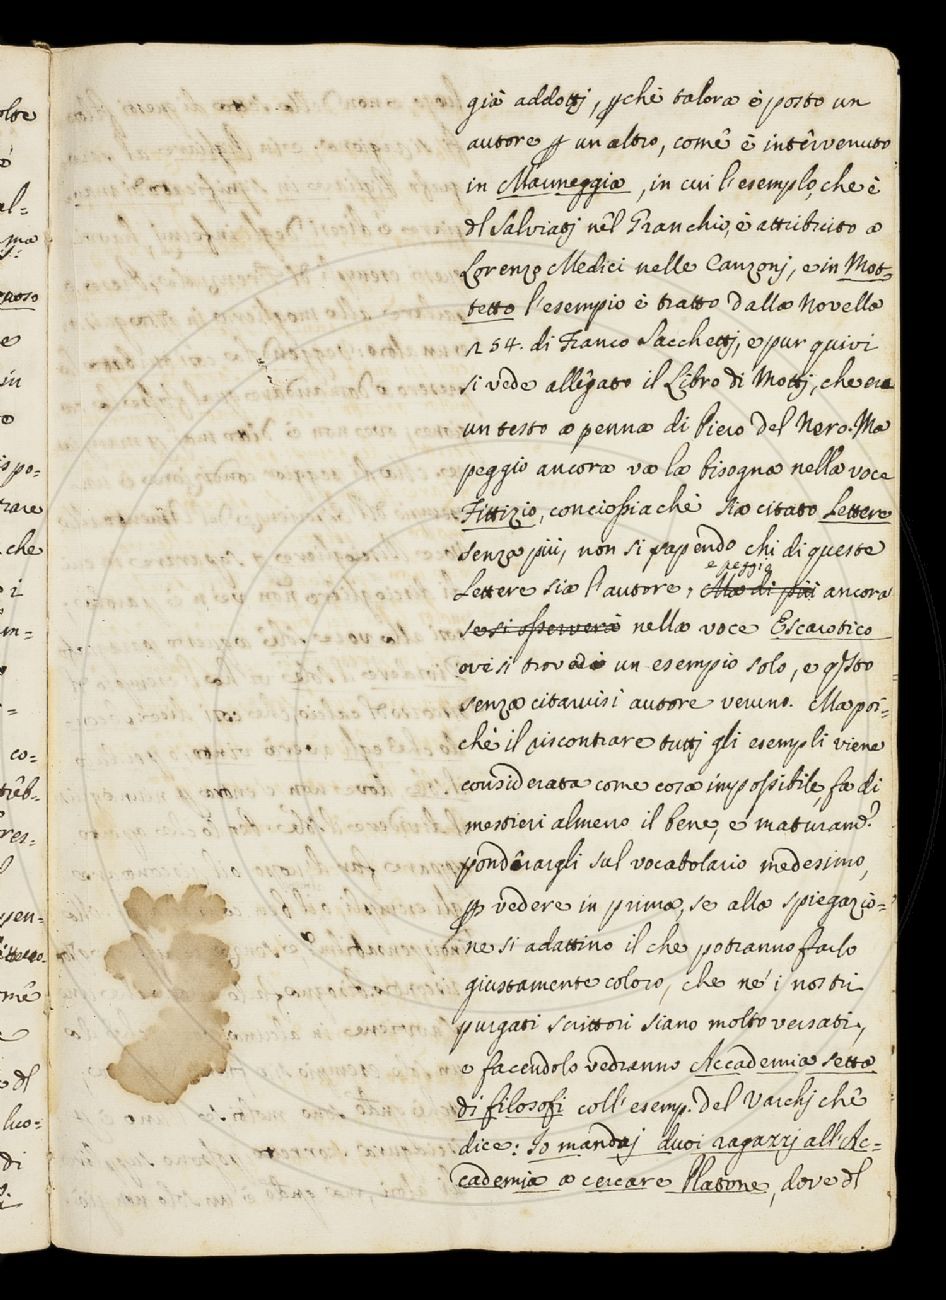 già addottj, ꝑchè talora è posto un
autore ꝑ un altro, come è intervenuto
in Mauneggia, in cui l'esemplo, che è
dl Salviatj nel Granchio, è attribuito a
Lorenzo Medici nelle Canzonj, e in Mot=
tetto l'esempio è tratto dalla Novella
254. di Franco Sacchettj, e pur quivi
si vede allegato il Libro di Mottj, che era
un testo a penna di Piero del Nero. Ma
peggio ancora va la bisogna nella voce
Fittizio, conciossiachè sia citato Lettere
senza più, non si sapendo chi di queste
e peggio
Lettere sia l'autore, Ma di più ancora
se si osserverà nella voce Escarotico
ove si trova un esempio solo, e qsto
senza citarvisi autore veruno. Ma poi=
chè il riscontrare tuttj gli esempli viene
considerata come cosa impossibile, fa di
mestieri almeno il bene, e maturamte.
ponderargli sul vocabolario medesimo,
ꝑ vedere in prima, se alla spiegazio=
ne si adattino il che potranno farlo
giustamente coloro, che ne' i nostri
purgati scrittori siano molto versati,
e facendolo vedranno Accademia setta
di filosofi coll' esemp. del Varchj che
dice: Io mandaj duoi ragazzj all'Ac=
cademia a cercare Platone, dove dl